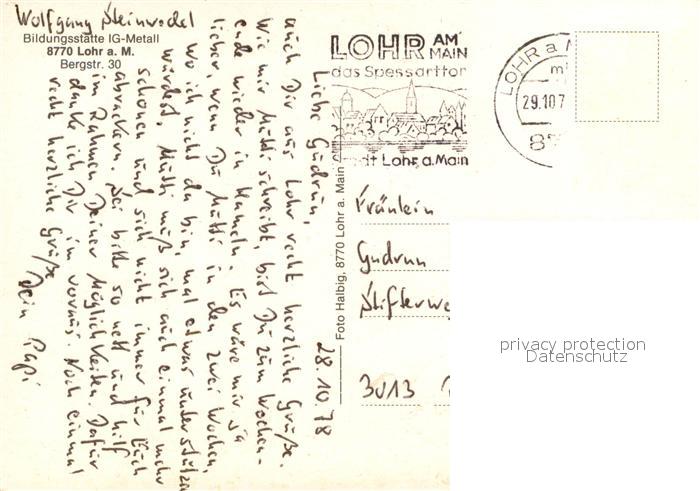 Wolfgang Steinwedel
Bildungsstätte IG-Metall
8770 Lohr a. M.
Bergstr. 30
28.10.78
Liebe Gudrun,
auch Dir aus Lohr recht herzliche Grüße.
Wie mir Mutti schreibt, bist Du zum Wochen-
ende wieder in Hameln. Es wäre mir ja
lieber, wenn Du Mutti in den zwei Wochen,
wo ich nicht da bin, mal etwas unterstützen
würdest. Mutti muß sich auch einmal mehr
schonen und sich nicht immer für Euch
abrackern. Sei bitte so nett und hilf
im Rahmen Deiner Möglichkeiten. Dafür
danke ich Dir im voraus. Noch einmal
recht herzliche Grüße
Dein Papi
Foto Halbig, 8770 Lohr a. Main
LOHR AM MAIN
das Spessarttor
Stadt Lohr a. Main
LOHR a. M
29.10.7
87
Fräulein
Gudrun
Stifterwe
3013
privacy protection
Datenschutz